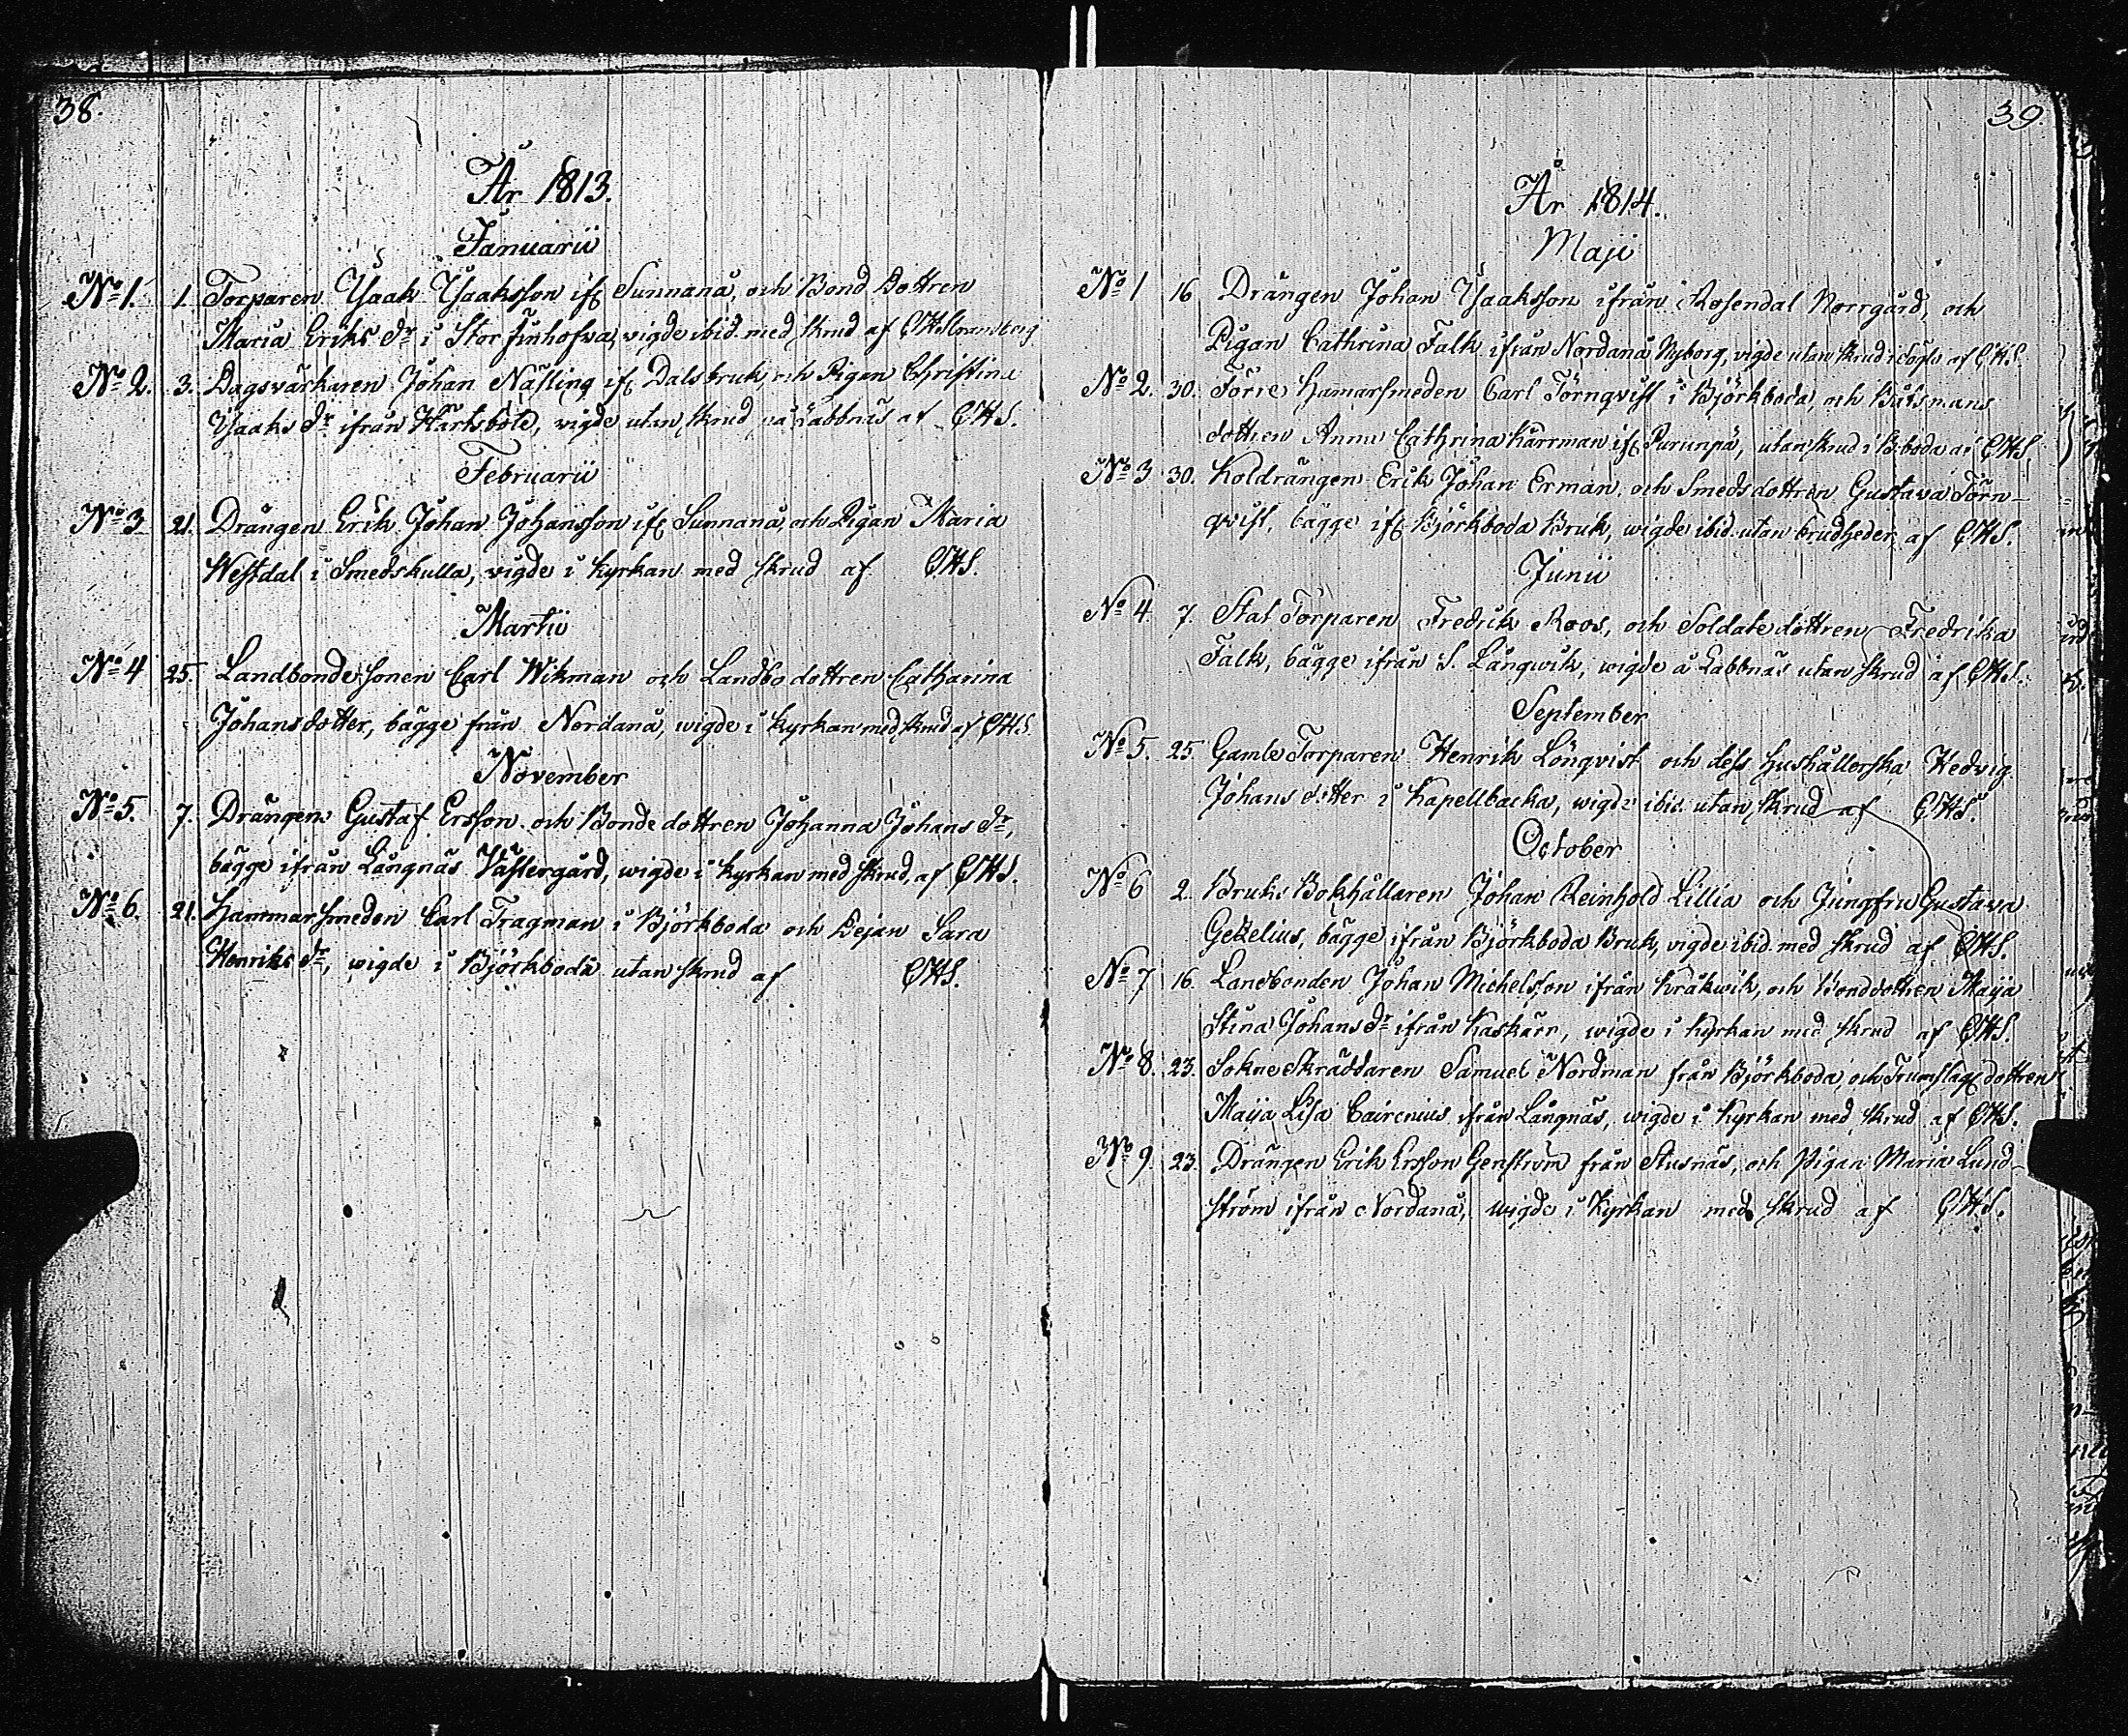 38.
År 1813.
Januarii
No 1. 1. Torparen Isaak Isaaksson ifr Sunnanå, och Bond Dottren
Maria Eriks dr i Stor finhofva, vigde ibid. med skrud af
No 2. 3. Dagsvärkaren Johan Näsling ifr Dalsbruk, och Pigan Christina
Isaaks dr ifrån Hartsböle, vigde utan skrud på Labbnäs af CHS.
Februarii
No 3 21. Drängen Erik Johan Johansson ifr Sunnanå, och Pigan Maria
Westdal i Smedskulla, vigde i kyrkan med skrud af CHS.
Martii
No 4 25. Landbondesonen Carl Wikman och Landbodottren Catharina
Johansdotter, bägge från Nordanå, wigde i kyrkan med skrud af CHS.
November
No 5. 7. Drängen Gustaf Ersson och Bondedottren Johanna Johans dr,
bägge ifrån Långnäs Västergård, wigde i kyrkan med skrud, af CHS.
No 6. 21. Hammarsmeden Carl Tragman i Björkboda och Dejan Sara
Henriks dr, wigde i Björkboda utan skrud af CHS.
39.
År 1814.
Maji
No 1 16 Drängen Johan Isaaksson ifrån Rosendal Norrgård, och
Pigan Cathrina Falk ifrån Nordanå Nyborg, vigde utan skrud af CHS.
No 2. 30. Förre Hamarsmeden Carl Törnqvist i Björkboda, och Båtsmans
dottren Anna Cathrina Kärrman ifr Purunpä, utan skrud i B.boda af CHS.
No 3 30. Koldrängen Erik Johan Erman och Smedsdottren Gustava Törn-
qvist, bägge ifr Björkboda Bruk, wigde ibid. utan brudheder, af CHS.
Junii
No 4. 7. Stat Torparen Fredrik Roos, och Soldatedottren Fredrika
Falk, bägge ifrån S. Långwik, wigde å Labbnäs utan skrud af CHS.
September
No 5. 25. Gamle Torparen Henrik Lönqvist och dess Hushållerska Hedvig
Johans dotter i Kapellbacka, wigde ibid. utan skrud af CHS.
October
No 6 2. Bruks Bokhållaren Johan Reinhold Lillia och Jungfru Gustava
Gezelius, bägge ifrån Björkboda Bruk, vigde ibid. med skrud af CHS.
No 7 16. Landbonden Johan Michelsson ifrån Kråkwik, och Bonddottren Maija
Stina Johans dr ifrån Kaskärr, wigde i Kyrkan med skrud af CHS.
No 8. 23. Sokneskräddaren Samuel Nordman från Björkboda, och Trumslag dottren
Maija Lisa Cairenius ifrån Långnäs, wigde i Kyrkan med skrud af CHS.
No 9. 23. Drängen Erik Ersson Genström från Stusnäs, och Pigan Maria Lund-
ström ifrån Nordanå, wigde i Kyrkan med skrud af CHS.